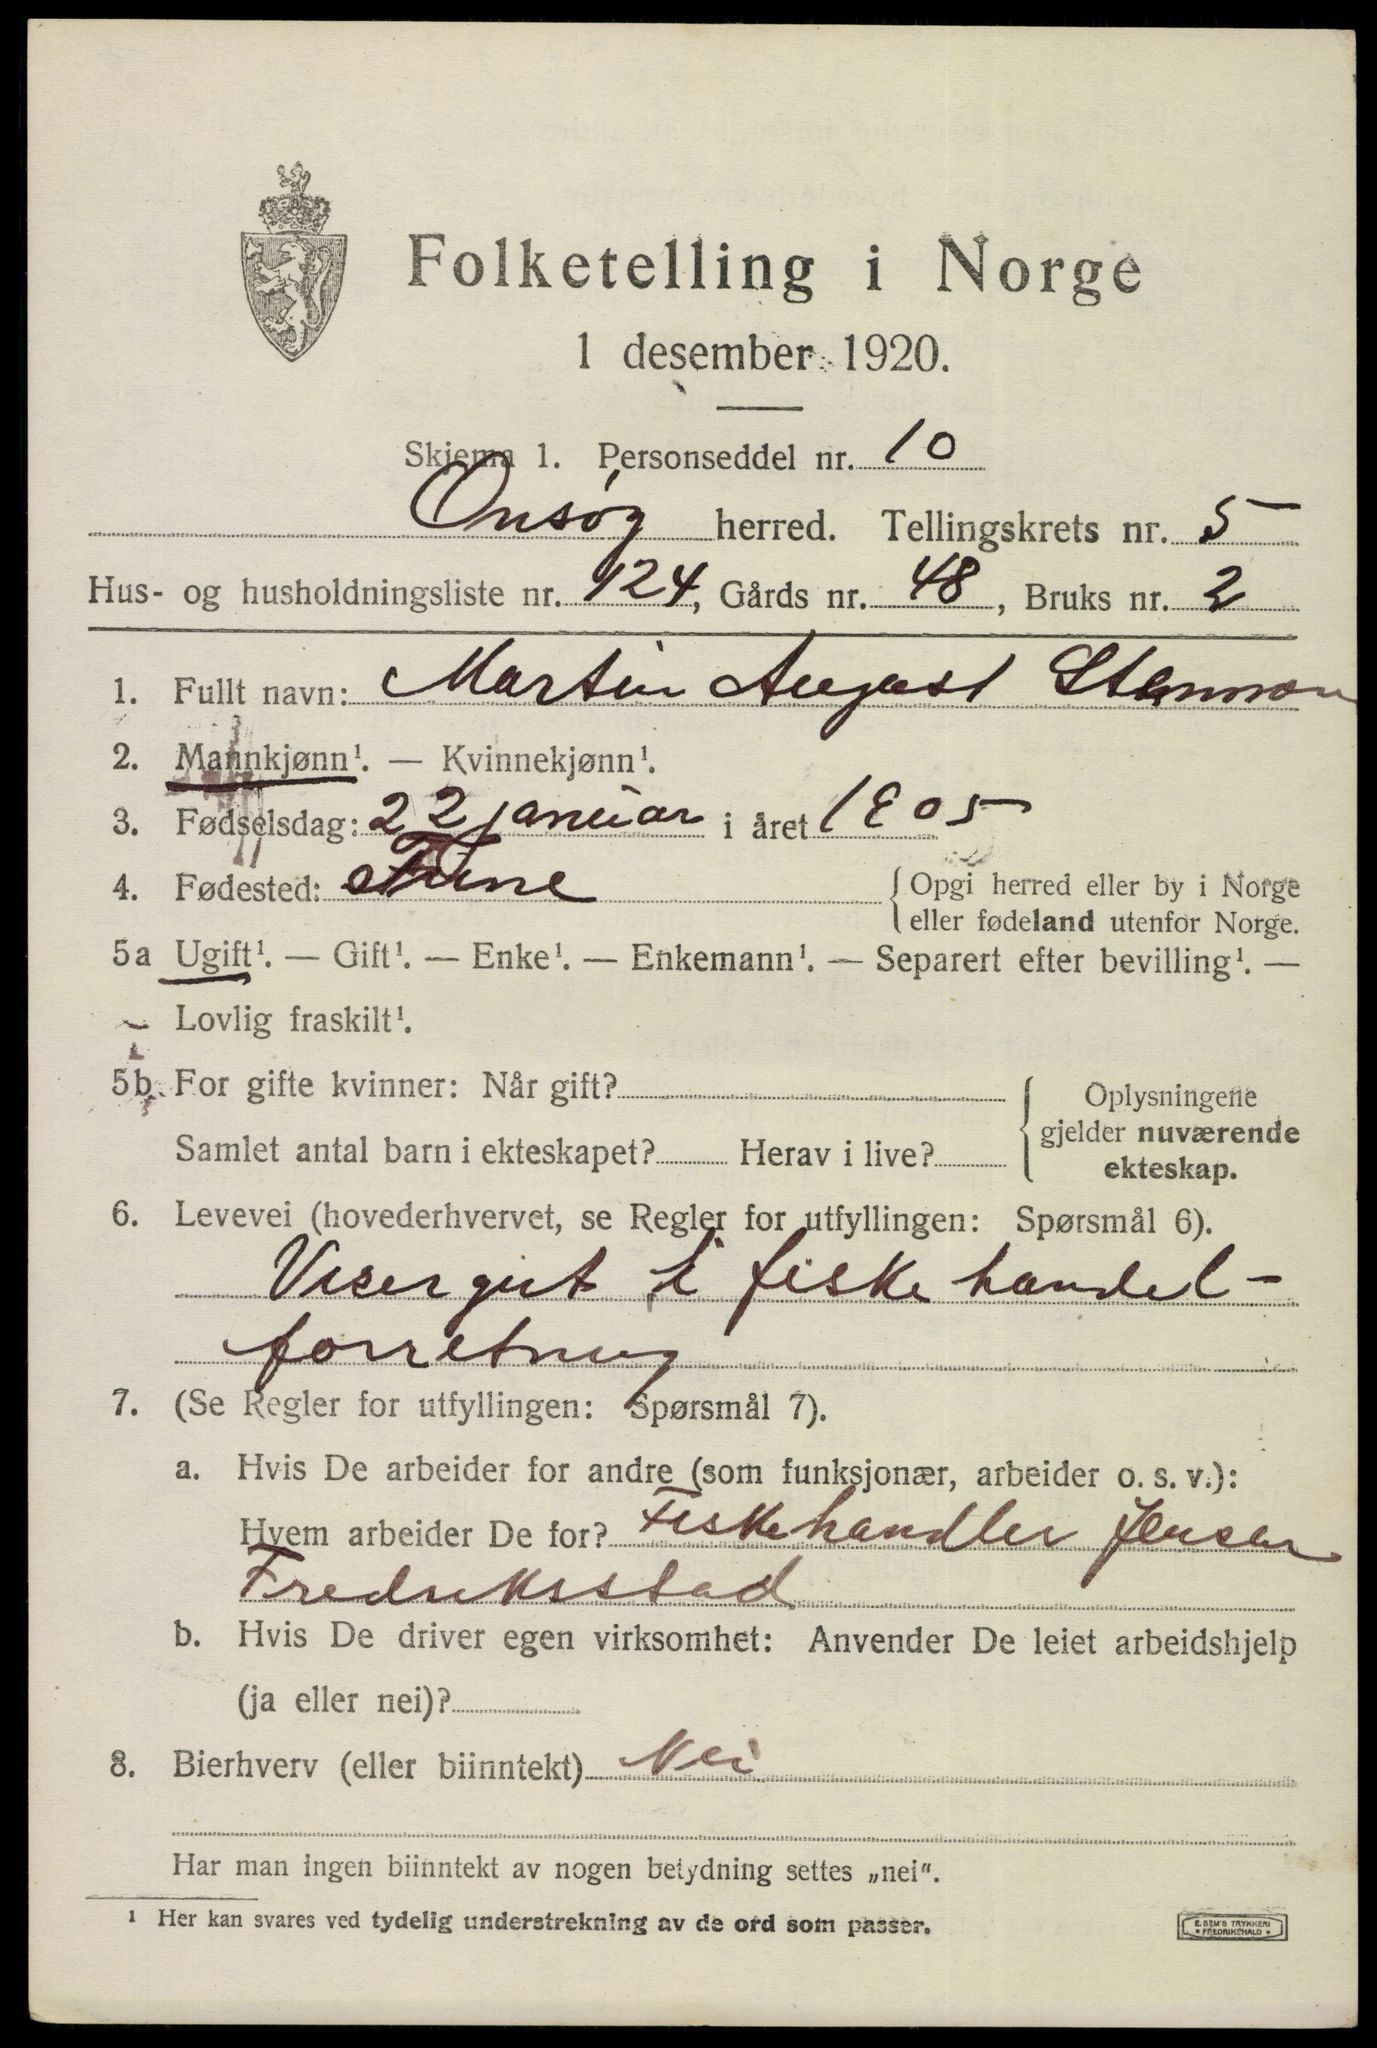 Folketelling i Norge
1 desember 1920.
Skjema 1. Personseddel nr. 10
Onsøy herred. Tellingskrets nr. 5
Hus- og husholdningsliste nr. 124, Gårds nr. 48, Bruks nr. 2
1. Fullt navn: Martin August
2. Mannkjønn¹. — Kvinnekjønn¹.
3. Fødselsdag: 22 januar i året 1905
4. Fødested: Tune {Opgi herred eller by i Norge
eller fødeland utenfor Norge.
5a Ugift¹. — Gift¹. — Enke¹. — Enkemann¹. — Separert efter bevilling¹. —
Lovlig fraskilt¹.
5b. For gifte kvinner: Når gift?
Samlet antal barn i ekteskapet? Herav i live?
{Oplysningene
gjelder nuværende
ekteskap.
6. Levevei (hovederhvervet, se Regler for utfyllingen: Spørsmål 6).
Visergut i fiskehandel-
forretning
7. (Se Regler for utfyllingen: Spørsmål 7).
a. Hvis De arbeider for andre (som funksjonær, arbeider o. s. v.):
Hvem arbeider De for? Fiskehandler Jensen
Fredriksstad
b. Hvis De driver egen virksomhet: Anvender De leiet arbeidshjelp
(ja eller nei)?
8. Bierhverv (eller biinntekt) Nei
Har man ingen biinntekt av nogen betydning settes „nei“.
¹ Her kan svares ved tydelig understrekning av de ord som passer.
E. SEM'S TRYKKERI
FREDRIKSHALD